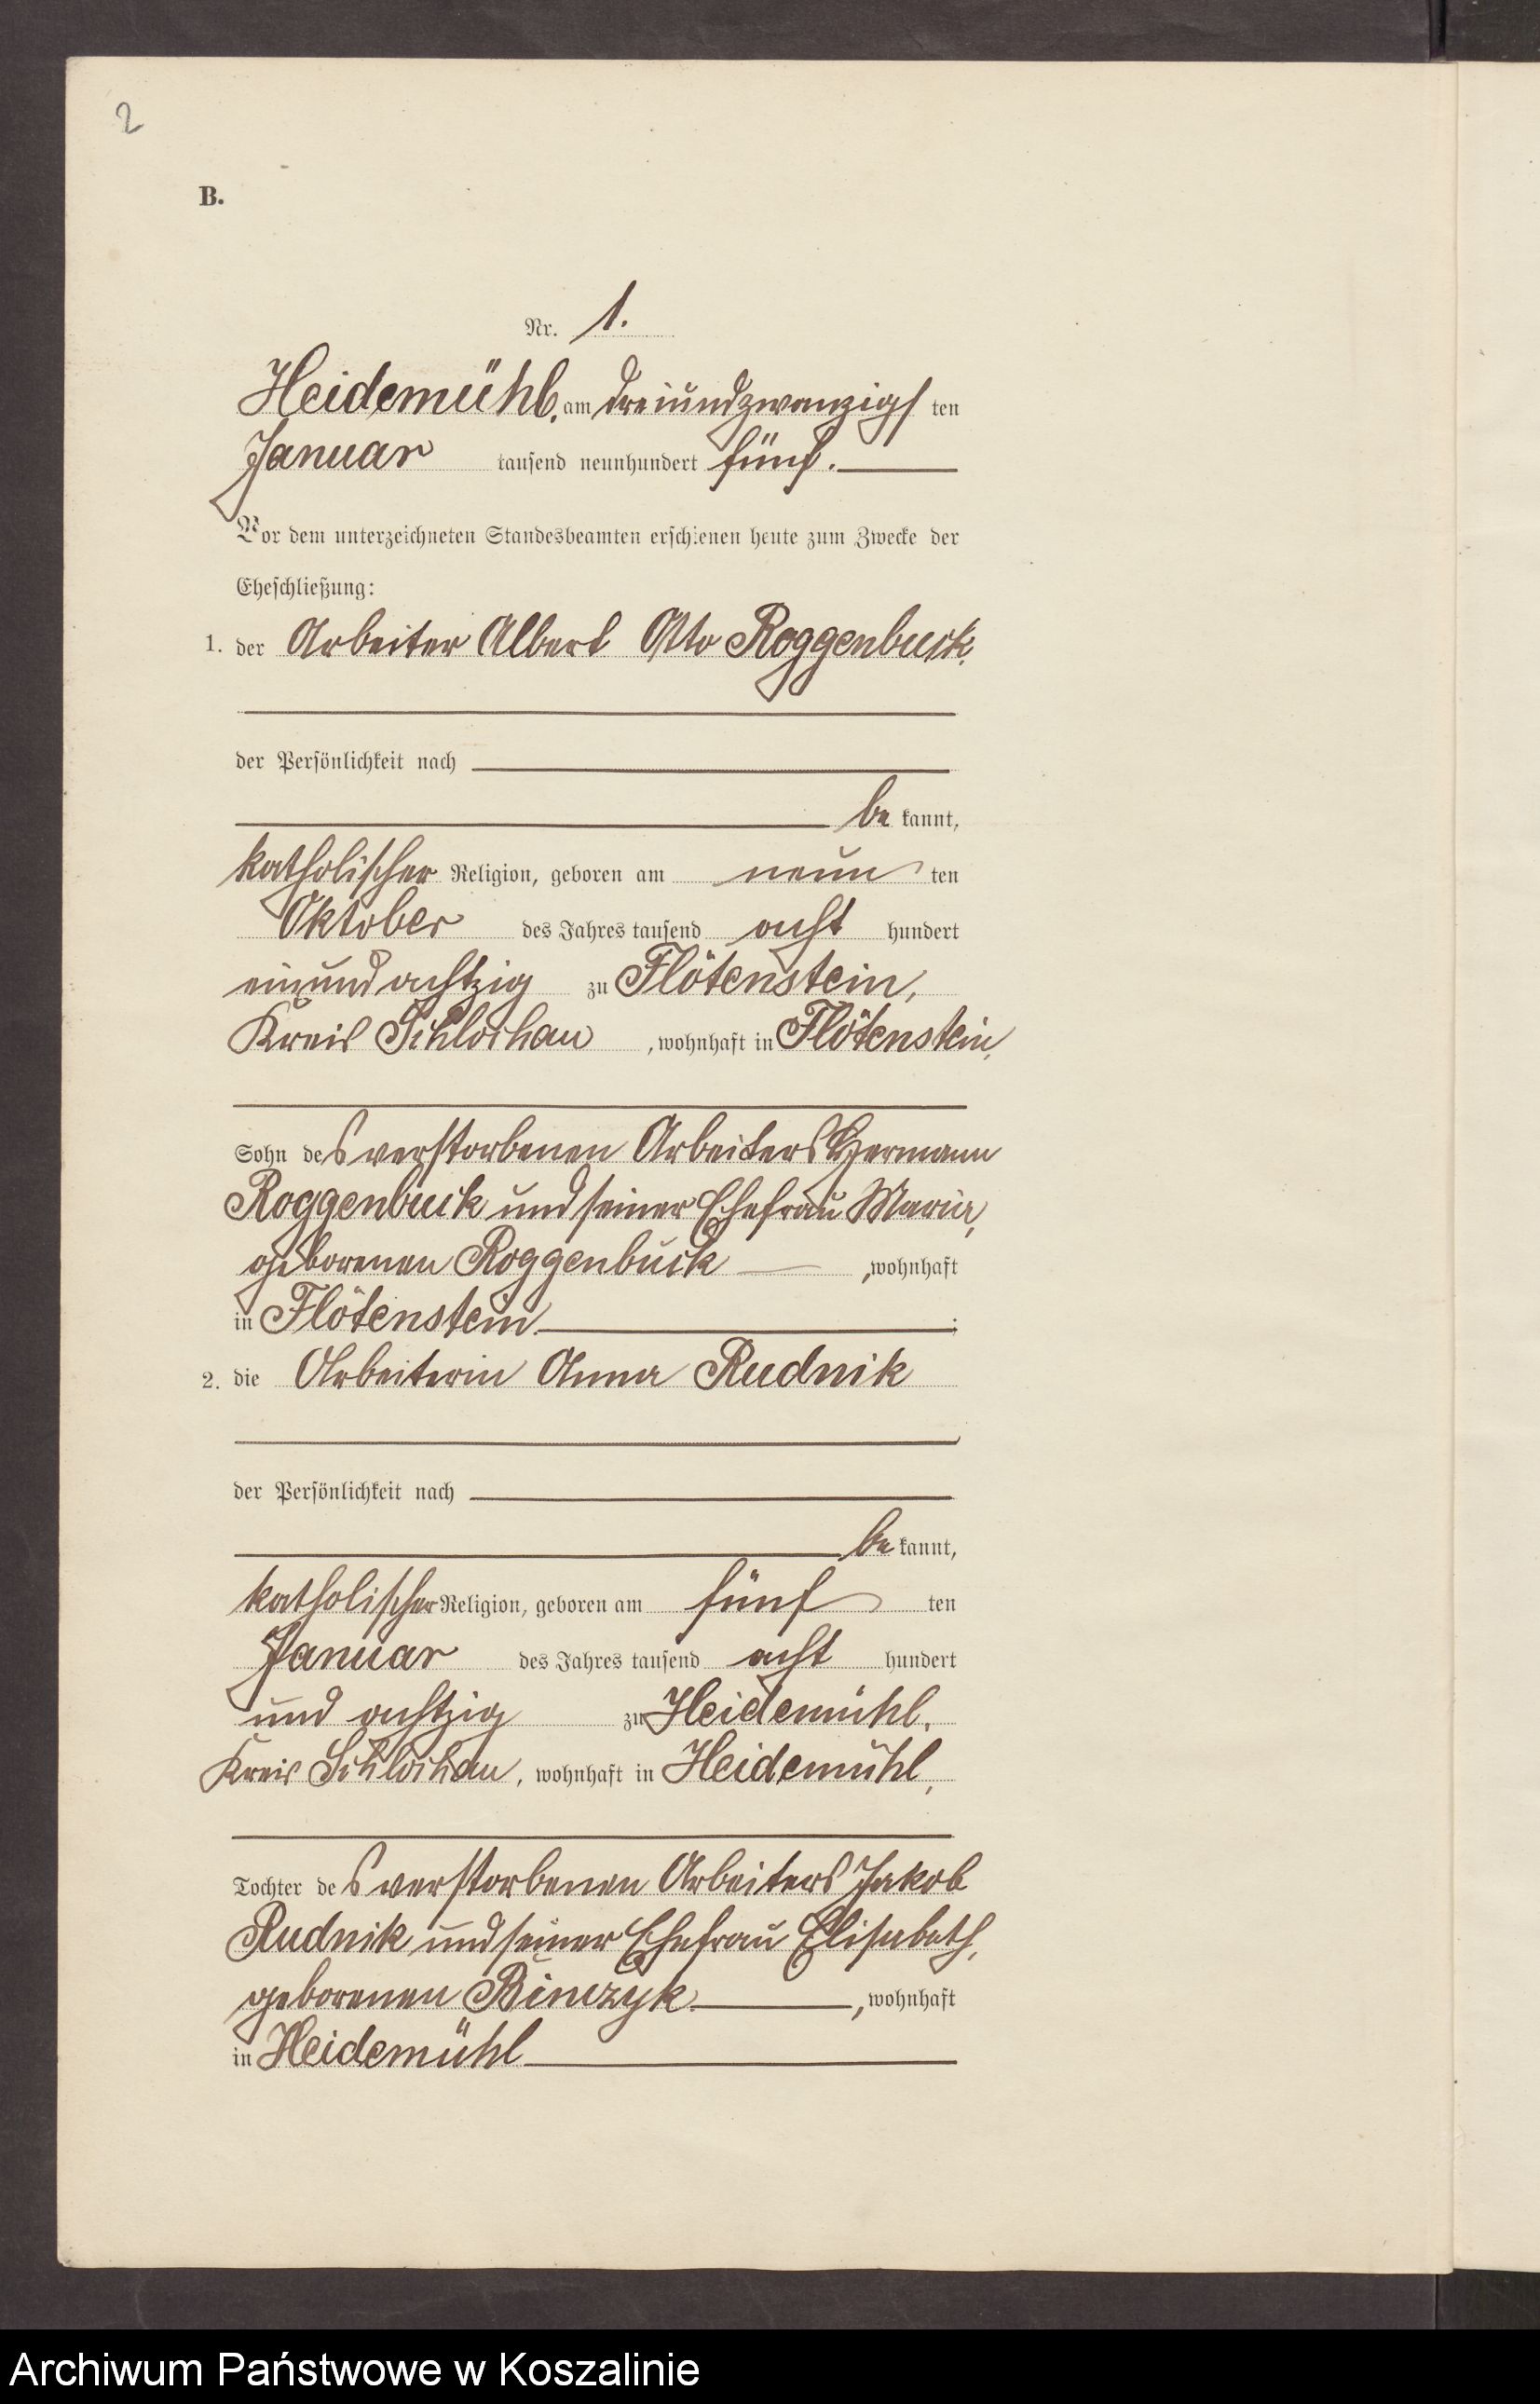 2
B.
Nr. 1.
Heidemühl, am dreiundzwanzigsten
Januar tausend neunhundert fünf.
Vor dem unterzeichneten Standesbeamten erschienen heute zum Zwecke der
Eheschließung:
1. der Arbeiter Albert Otto Roggenbuck,
der Persönlichkeit nach
bekannt,
katholischer Religion, geboren am neunten
Oktober des Jahres tausend acht hundert
einundachtzig zu Flötenstein,
Kreis Schlochau, wohnhaft in Flötenstein,
Sohn des verstorbenen Arbeiters Hermann
Roggenbuck und seiner Ehefrau Maria,
geborenen Roggenbuck, wohnhaft
in Flötenstein;
2. die Arbeiterin Anna Rudnik
der Persönlichkeit nach
bekannt,
katholischer Religion, geboren am fünften
Januar des Jahres tausend acht hundert
und achtzig zu Heidemühl,
Kreis Schlochau, wohnhaft in Heidemühl,
Tochter des verstorbenen Arbeiters Jakob
Rudnik und seiner Ehefrau Elisabeth,
geborenen Binczyk, wohnhaft
in Heidemühl
Archiwum Państwowe w Koszalinie